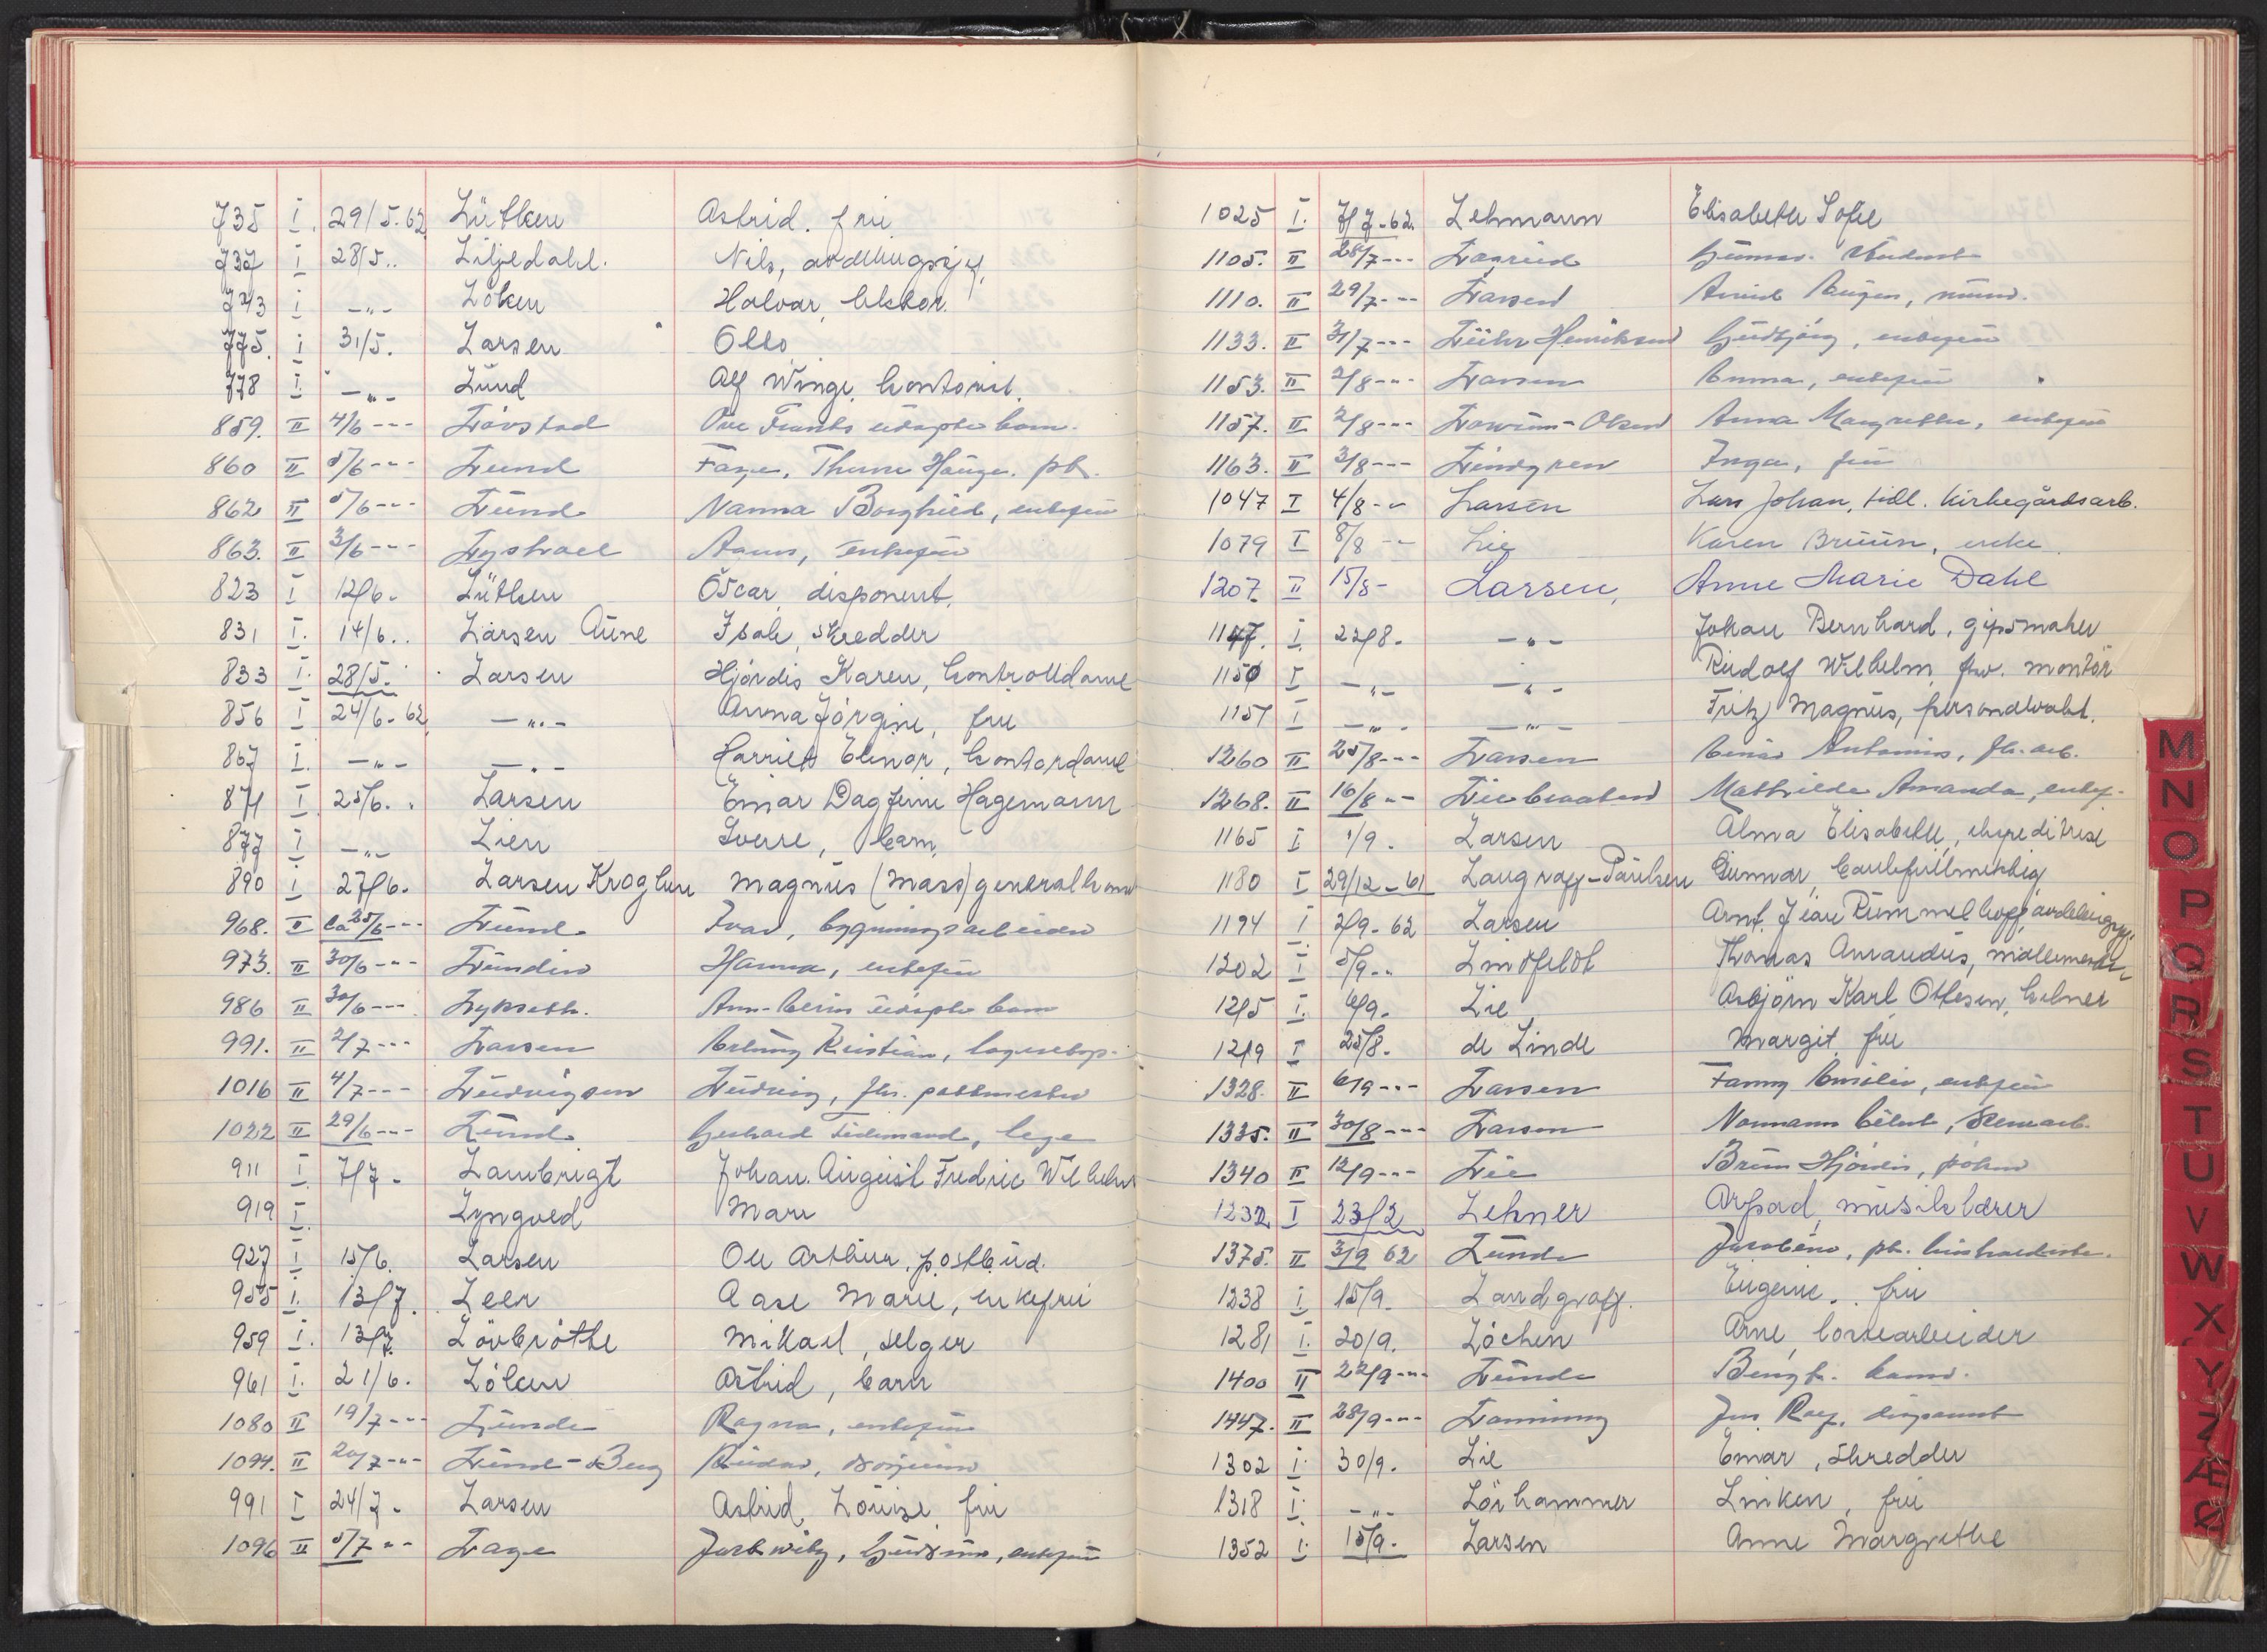 735 I. 29/5.62 Lütken Astrid. frü
737 I 28/5.. Liljedahl. Nils, avdelingssjef.
743 I -"- Löken Halvar, lektor.
775. I 31/5. Larsen Otto
778 I. -"- Lünd Alf Winge, kontorist.
859. II 4/6 --- Lövstad Ove Frants üdöpte barn.
860 II 5/6 --- Lund
862 II 5/6 --- Lünd Nanna Borghild, enkefrü
863. II 3/6 --- Lystrael enkefrü
823 I 12/6. Lütken Oscar disponent.
831 I. 14/6.. Larsen Aüne Isak, skredder
833 I. 28/5. Larsen Hjördis Karen, kontrolldame
856 I 24/6-62 -"- Anna Jörgine, frü
867 I. -"- -"- Harriet Elinor, kontordame
871 I 25/6.. Larsen Einar Dagfinn Hagemann
877 I -"- Lien Sverre, barn.
890 I 27/6. Larsen Kroghen Magnüs (Mass) generalkons
968. II ca 25/6 --- Lünd Ivar, bygningsarbeider
973. II 30/6 --- Lündin Hanna, enkefrü
986 II 30/6 --- Lykseth. üdöpte barn
991. II 2/7 --- Larsen Kristian,
1016 II 4/7 --- Lüdvigsen Lüdvig, fhv. postmester
1022 II 29/6 --- Lünd Gerhard Tidemand, lege
911 I 7/7. Lambrigt Johan Aügüst Fredric Wilhelm
919 I. Lyngved Mari
927 I 15/6. Larsen Ole Arthür, postbüd.
955 I. 13/7. Leer Aase Marie, enkefrü
959 I. 13/7. Lövbrötte Mikael, selger
961 I. 21/6. Löken Astrid, barn
1080 II 19/7 --- Lünde Ragna, enkefrü
1094. II 20/7 --- Lünd-Berg
991 I 24/7. Larsen Astrid Loüise frü
1096 II 5/7 -- Lage enkefrü
1025 I. 7/7-62. Lehmann Elisabeth Sofie
1105. II 28/7 --- Lagreid Günnar. Stüdent
1110. II 29/7 --- Larsen
1133. II 31/7 --- Lühr Henriksen Güdbjörg, enkefrü
1153. II 2/8 --- Larsen Emma, enkefrü
1157. II 2/8 --- Lorüm-Olsen Anna Margrethe, enkefrü
1163. II 3/8 --- Lindgren Inga, frü
1047 I 4/8 -- Larsen Lars Johan, tidl. kirkegårdsarb.
1079 I 8/8 -- Lie Karen Brüün, enke.
1207 II 15/8 - Larsen, Anne Marie Dahl
1147. I. 22/8. -"- Johan Bernhard, gipsmaker
1150 I -"- -"- Rüdolf Wilhelm, fhv. montör
1151 I -"- -"- Fritz Magnüs, personalvakt.
1260 II 25/8 --- Larsen Antonius, fb. arb.
1268. II 16/8 -- Liebraaten Mathilde Amanda, enkef.
1165 I 1/9. Larsen Alma Elisabeth, ekspeditrise
1180 I 29/12-61 Langraff-Paülsen Günnar, bankfüllmektig
1194 I 2/9-62 Larsen Arnt. Jean Rümmelhoff, avdelingssj.
1202 I. 5/9.. Lindfeldt Thomas Amandüs, möllemester
1215 I. 6/9. Lie Asbjörn Karl Ottesen, kelner
1219 I 25/8. de Linde Margit frü
1328. II 6/9 --- Larsen Fanny Emilie, enkefrü
1335. II 30/8 --- Larsen Normann
1340 II 12/9 --- Lie
1232 I 23/2 Lehner Arpad, müsiklærer
1375. II 3/9 62 Lünde Jacobine, pb.
1238 I 15/9. Landgraff. Eügenie. frü
1281 I. 20/9. Löchen Arne, lossearbeider
1400 II 22/9 --- Lünde Bengt.
1447. II 28/9 --- Lanning disponent
1302 I. 30/9. Lie Einar, skredder
1318 I. -"- Lövhammer Linken, frü
1352 I. 15/9. Larsen Anne Margrethe
M
N
O
P
Q
R
S
T
U
V
W
X
Y
Z
Æ
Ø